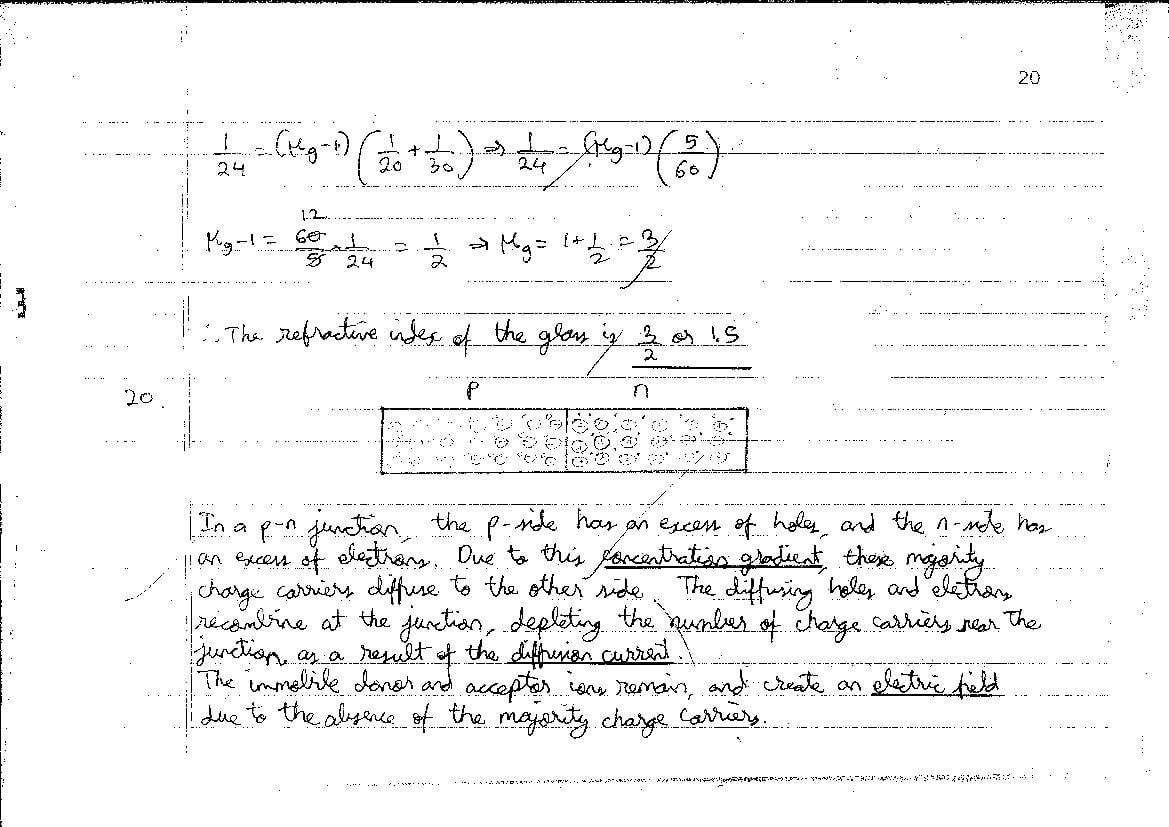 20
1/24 = (μg-1) (1/20 + 1/30) ⇒ 1/24 = (μg-1) (5/60)
12
μg-1 = 60/5 × 1/24 = 1/2 ⇒ μg = 1+1/2 = 3/2
∴ The refractive index of the glass is 3/2 or 1.5
20.
p n
In a p-n junction, the p-side has an excess of holes, and the n-side has
an excess of electrons. Due to this concentration gradient, these majority
charge carriers diffuse to the other side. The diffusing holes and eletrons
recombine at the junction, depleting the number of charge carriers near the
junction, as a result of the diffusion current.
The immobile donor and acceptor ions remain, and create an electric field
due to the absence of the majority charge carriers.